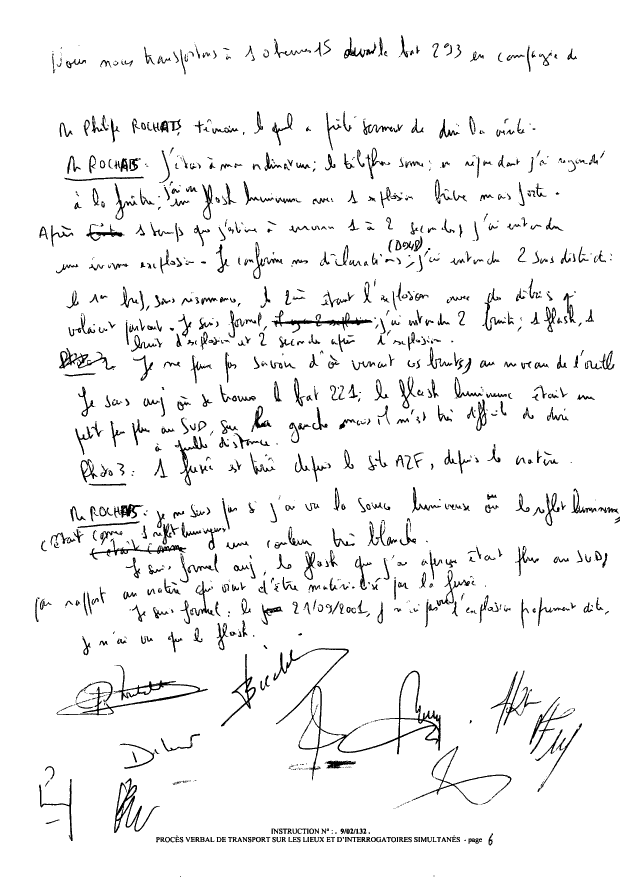 Nous nous transportons à 10 heures 15 devant le bat 293 en compagnie de
Mr Philippe ROCHATS, témoin, lequel a prêté serment de dire la vérité.
Mr ROCHATS : j'étais à mon ordinateur ; le téléphone sonne ; en répondant j'ai regardé
à la fenêtre ; j'ai vu un flash lumineux avec 1 explosion brève mais forte.
Après 1 temps que j'estime à environ 1 à 2 secondes, j'ai entendu
une énorme explosion. Je confirme mes déclarations (D048) ; j'ai entendu 2 sons distincts :
le 1er bref, sans résonnance, le 2è étant l'explosion avec des débris qui
volaient partout. Je suis formel, j'ai entendu 2 bruits ; 1 flash, 1
bruit d'explosion et 2 secondes après l'explosion.
Je ne peux pas savoir d'où venait ces bruits, au niveau de l'oreille
Je sais auj où se trouve le bat 221 ; le flash lumineux était un
petit peu plus au SUD, sur la gauche mais il m'est très difficile de dire
à quelle distance.
Phase 3 : 1 fusée est tirée depuis le site AZF, depuis le cratère.
Mr ROCHATS : je ne sais pas si j'ai vu la source lumineuse ou le reflet lumineux,
c'était comme 1 reflet lumineux
d'une couleur très blanche.
Je suis formel auj, le flash que j'ai aperçu était plus au SUD,
par rapport au cratère qui vient d'être matérialisé par la fusée.
Je suis formel : le 21/09/2001, je n'ai pas vu l'explosion proprement dite,
je n'ai vu que le flash.
INSTRUCTION N° : . 9/02/132 .
PROCÈS VERBAL DE TRANSPORT SUR LES LIEUX ET D'INTERROGATOIRES SIMULTANÉS - page 6